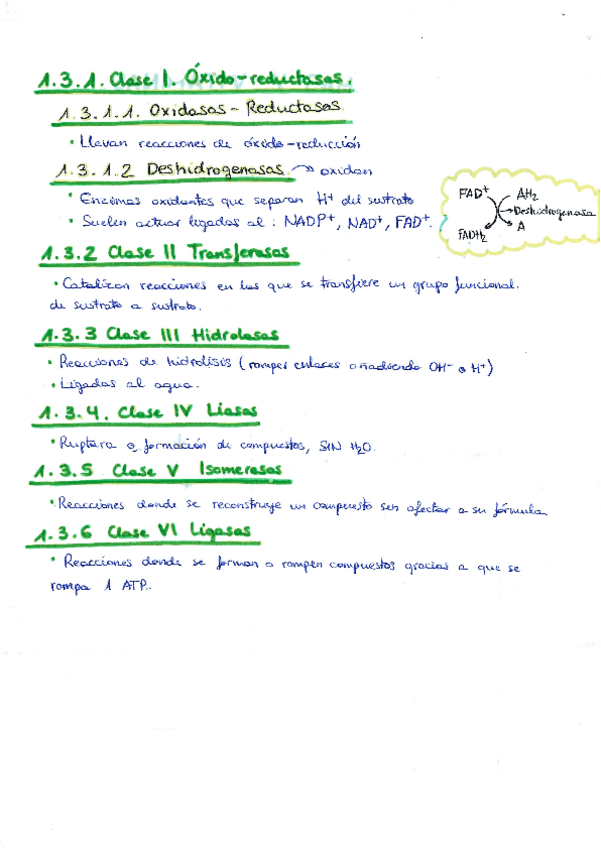 1.3.1. Clase I. Óxido-reductasas.
1.3.1.1. Oxidasas - Reductasas
• Llevan reacciones de óxido-reducción
1.3.1.2 Deshidrogenasas → oxidan
• Enzimas oxidantes que separan H+ del sustrato
• Suelen actuar ligadas al: NADP+, NAD+, FAD+.
FAD+ AH2
Deshidrogenasa
FADH2 A
1.3.2 Clase II Transferasas
• Catalizan reacciones en las que se transfiere un grupo funcional.
de sustrato a sustrato.
1.3.3 Clase III Hidrolasas
• Reacciones de hidrólisis (romper enlaces añadiendo OH- o H+)
• Ligadas al agua.
1.3.4. Clase IV Liasas
• Ruptura o formación de compuestos, SIN H2O.
1.3.5 Clase V Isomerasas
• Reacciones donde se reconstruye un compuesto sin afectar a su fórmula
1.3.6 Clase VI Ligasas
• Reacciones donde se forman o rompen compuestos gracias a que se
rompa 1 ATP.